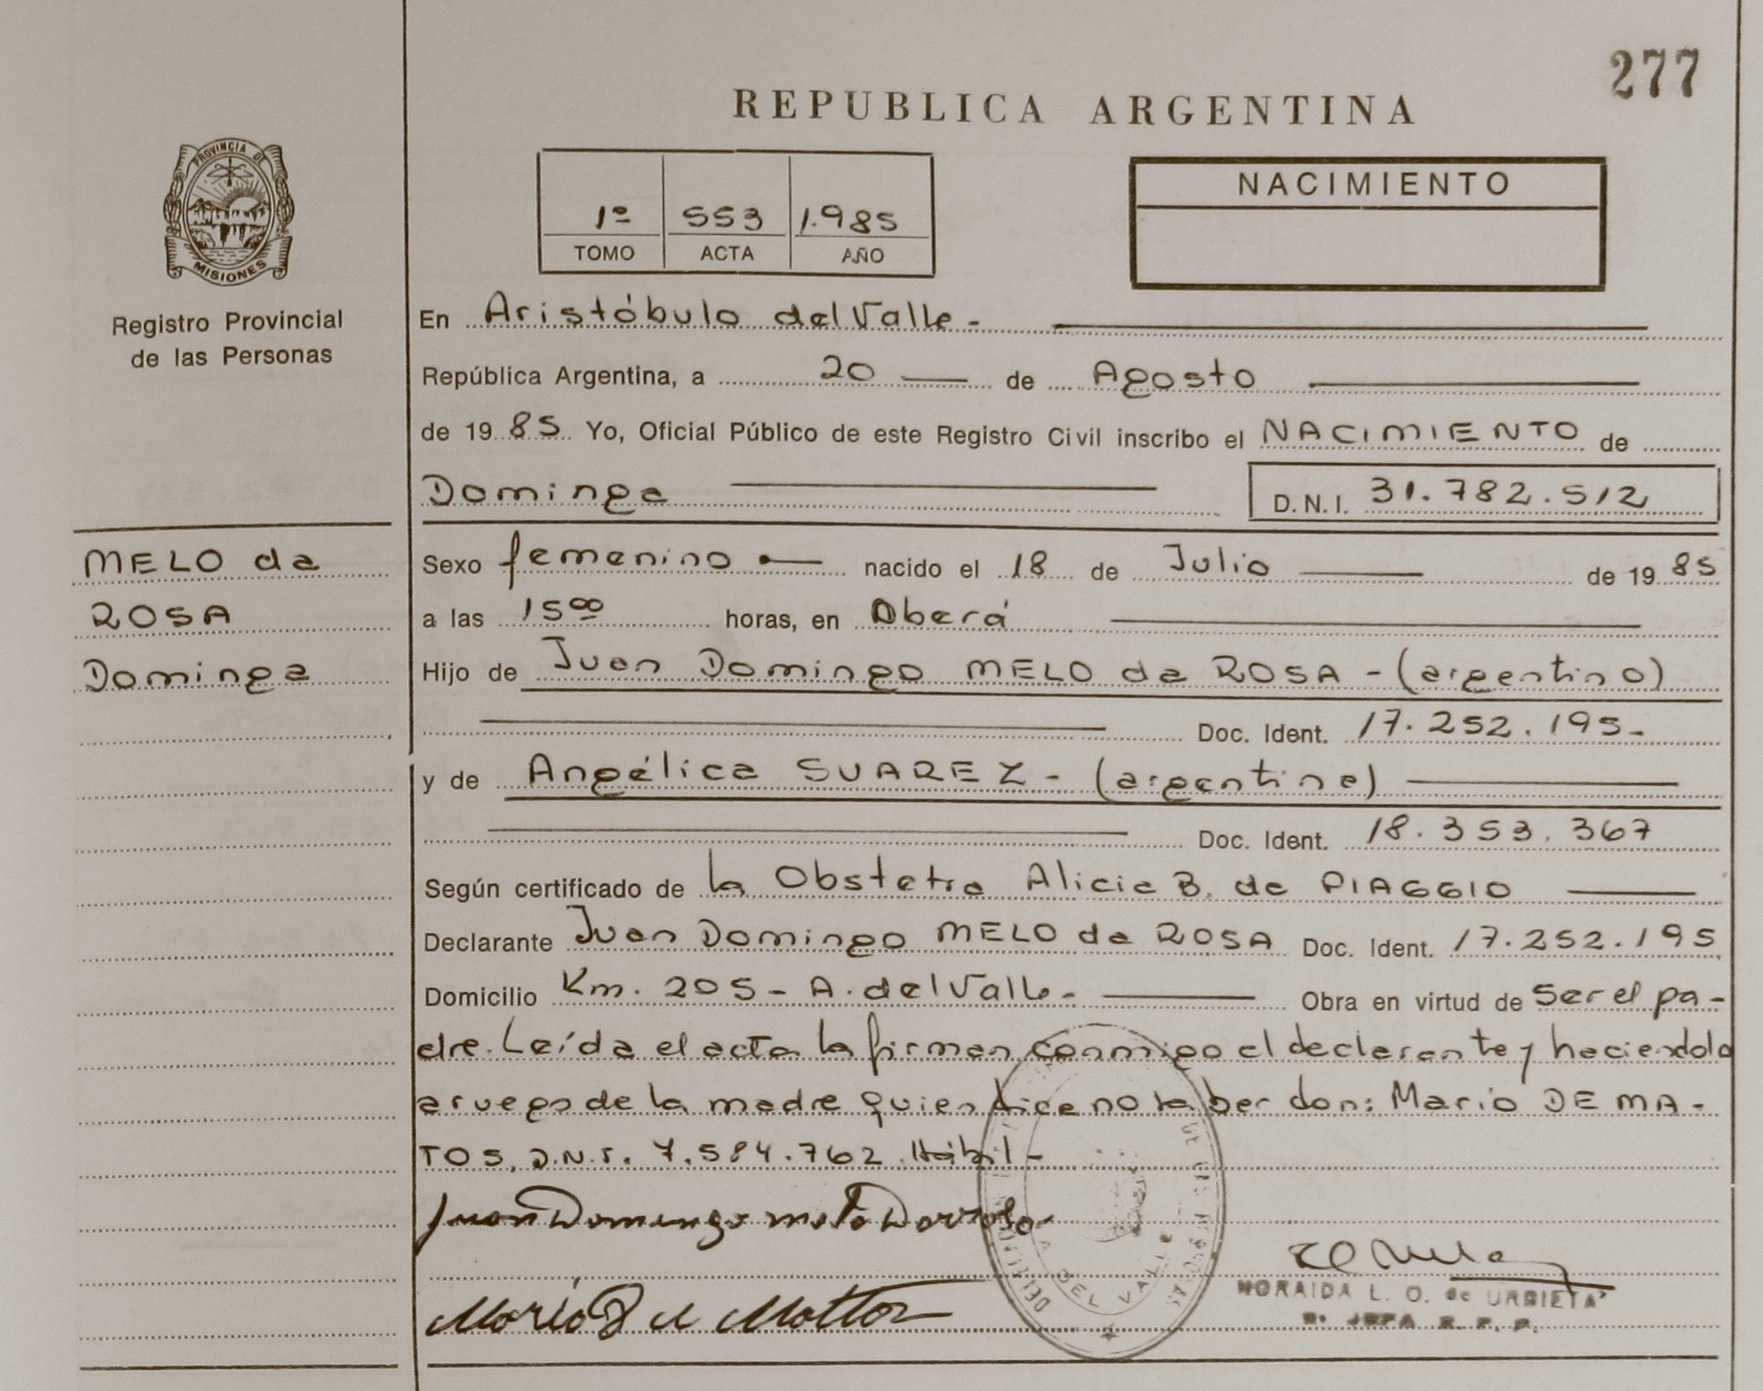 277
REPUBLICA ARGENTINA
PROVINCIA DE
MISIONES
Registro Provincial
de las Personas
1º 553 1.985
TOMO ACTA AÑO
NACIMIENTO
En Aristóbulo del Valle.-
República Argentina, a 20 de Agosto
de 1985 Yo, Oficial Público de este Registro Civil inscribo el NACIMIENTO de
Dominga D.N.I. 31.782.512
MELO da
ROSA
Dominga
Sexo femenino nacido el 18 de Julio de 1985
a las 15ºº horas, en Oberá
Hijo de Juan Domingo MELO da ROSA - (argentino)
Doc. Ident. 17.252.195-
y de Angélica SUAREZ - (argentina)
Doc. Ident. 18.353.367
Según certificado de la Obstetra Alicia B. de PIAGGIO
Declarante Juan Domingo MELO da ROSA Doc. Ident. 17.252.195
Domicilio Km. 205 - A. del Valle - Obra en virtud de ser el pa-
dre. Leída el acta la firman conmigo el declarante y haciendolo
a ruego de la madre quien dice no saber don: Mario DE MA-
TOS, D.N.I. 7.584.762 Hábil-
Juan Domingo
Mario D
DEL VALLE
L. O. de URBIETA
JEFA R. P. P.